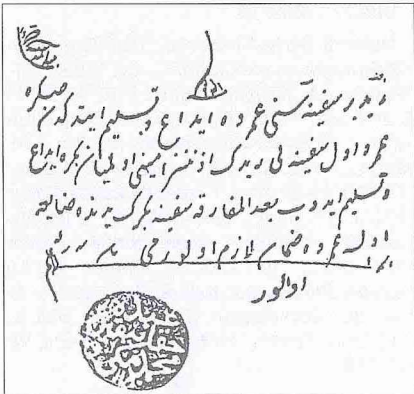 زيد بر سفينه‌سنى عمروه ايداع و تسليم ايتدكدن صكره
عمرو اول سفينه‌يى زيدك اذنسز امينى اولميان بكره ايداع
و تسليم ايدوب بعد المفارقه سفينه بكرك يدنده ضايعه
اولسه عمروه ضمان لازم اولورمى
اولور